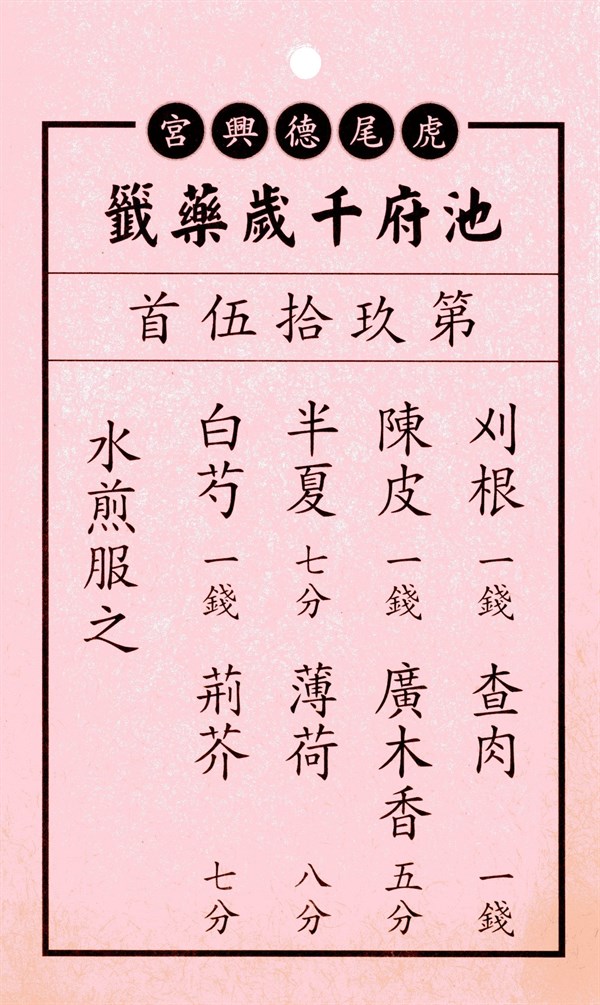 虎尾德興宮
池府千歲藥籤
第玖拾伍首
刈根一錢 查肉一錢
陳皮一錢 廣木香五分
半夏七分 薄荷八分
白芍一錢 荊芥七分
水煎服之